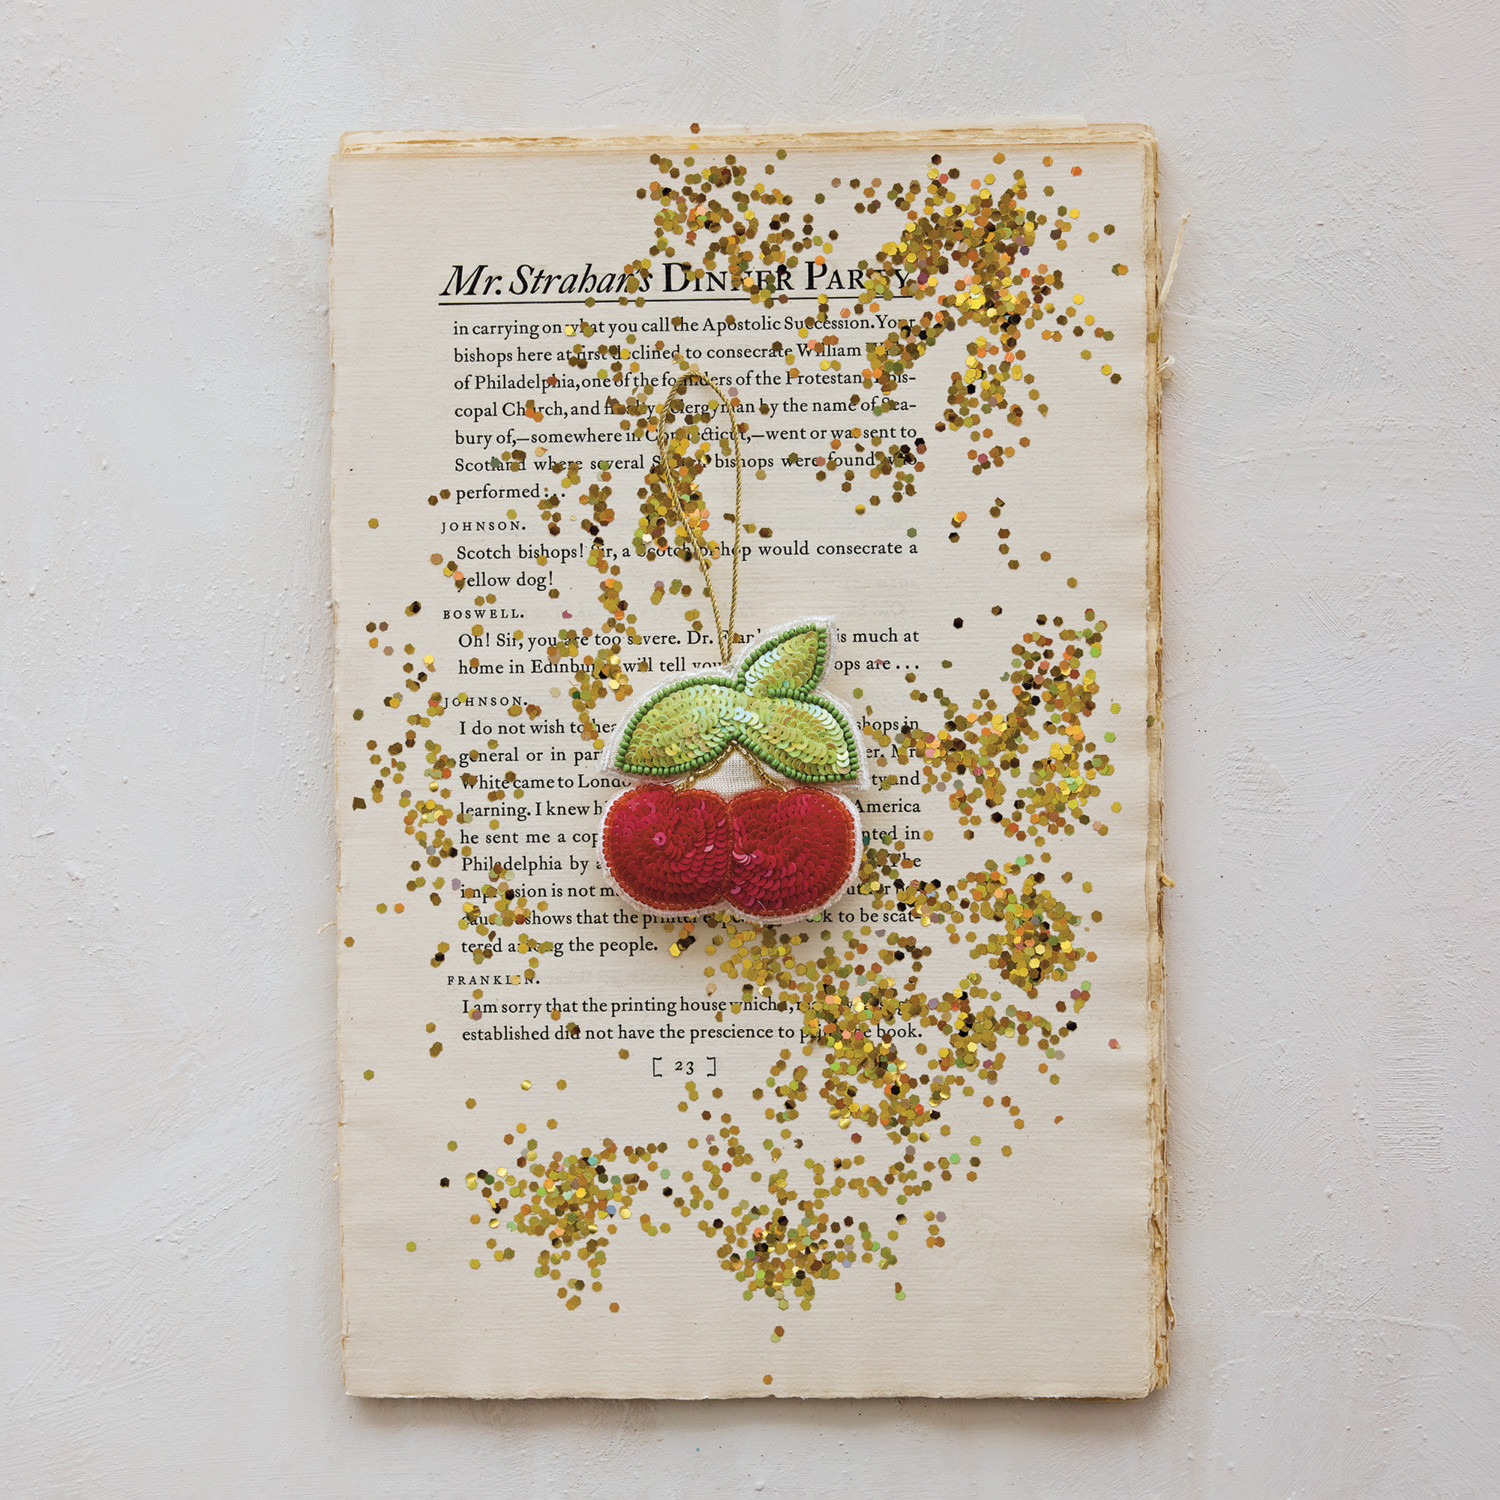 Mr. Strahan's DINNER PARTY
in carrying on what you call the Apostolic Succession. Your
bishops here at first declined to consecrate William
of Philadelphia, one of the founders of the Protestant Epis-
copal Church, and finally a clergyman by the name of Sea-
bury of,—somewhere in Connecticut,—went or was sent to
Scotland where several Scotch bishops were found who
performed...
JOHNSON.
Scotch bishops! Sir, a Scotch bishop would consecrate a
yellow dog!
BOSWELL.
Oh! Sir, you are too severe. Dr. Franklin is much at
home in Edinburgh, will tell you ops are...
JOHNSON.
I do not wish to hea shops in
general or in par er. Mr.
White came to Londo ty and
learning. I knew h America
he sent me a cop nted in
Philadelphia by The
impression is not m
shows that the printer to be scat-
tered among the people.
FRANKLIN.
I am sorry that the printing house which I,
established did not have the prescience to print the book.
[ 23 ]